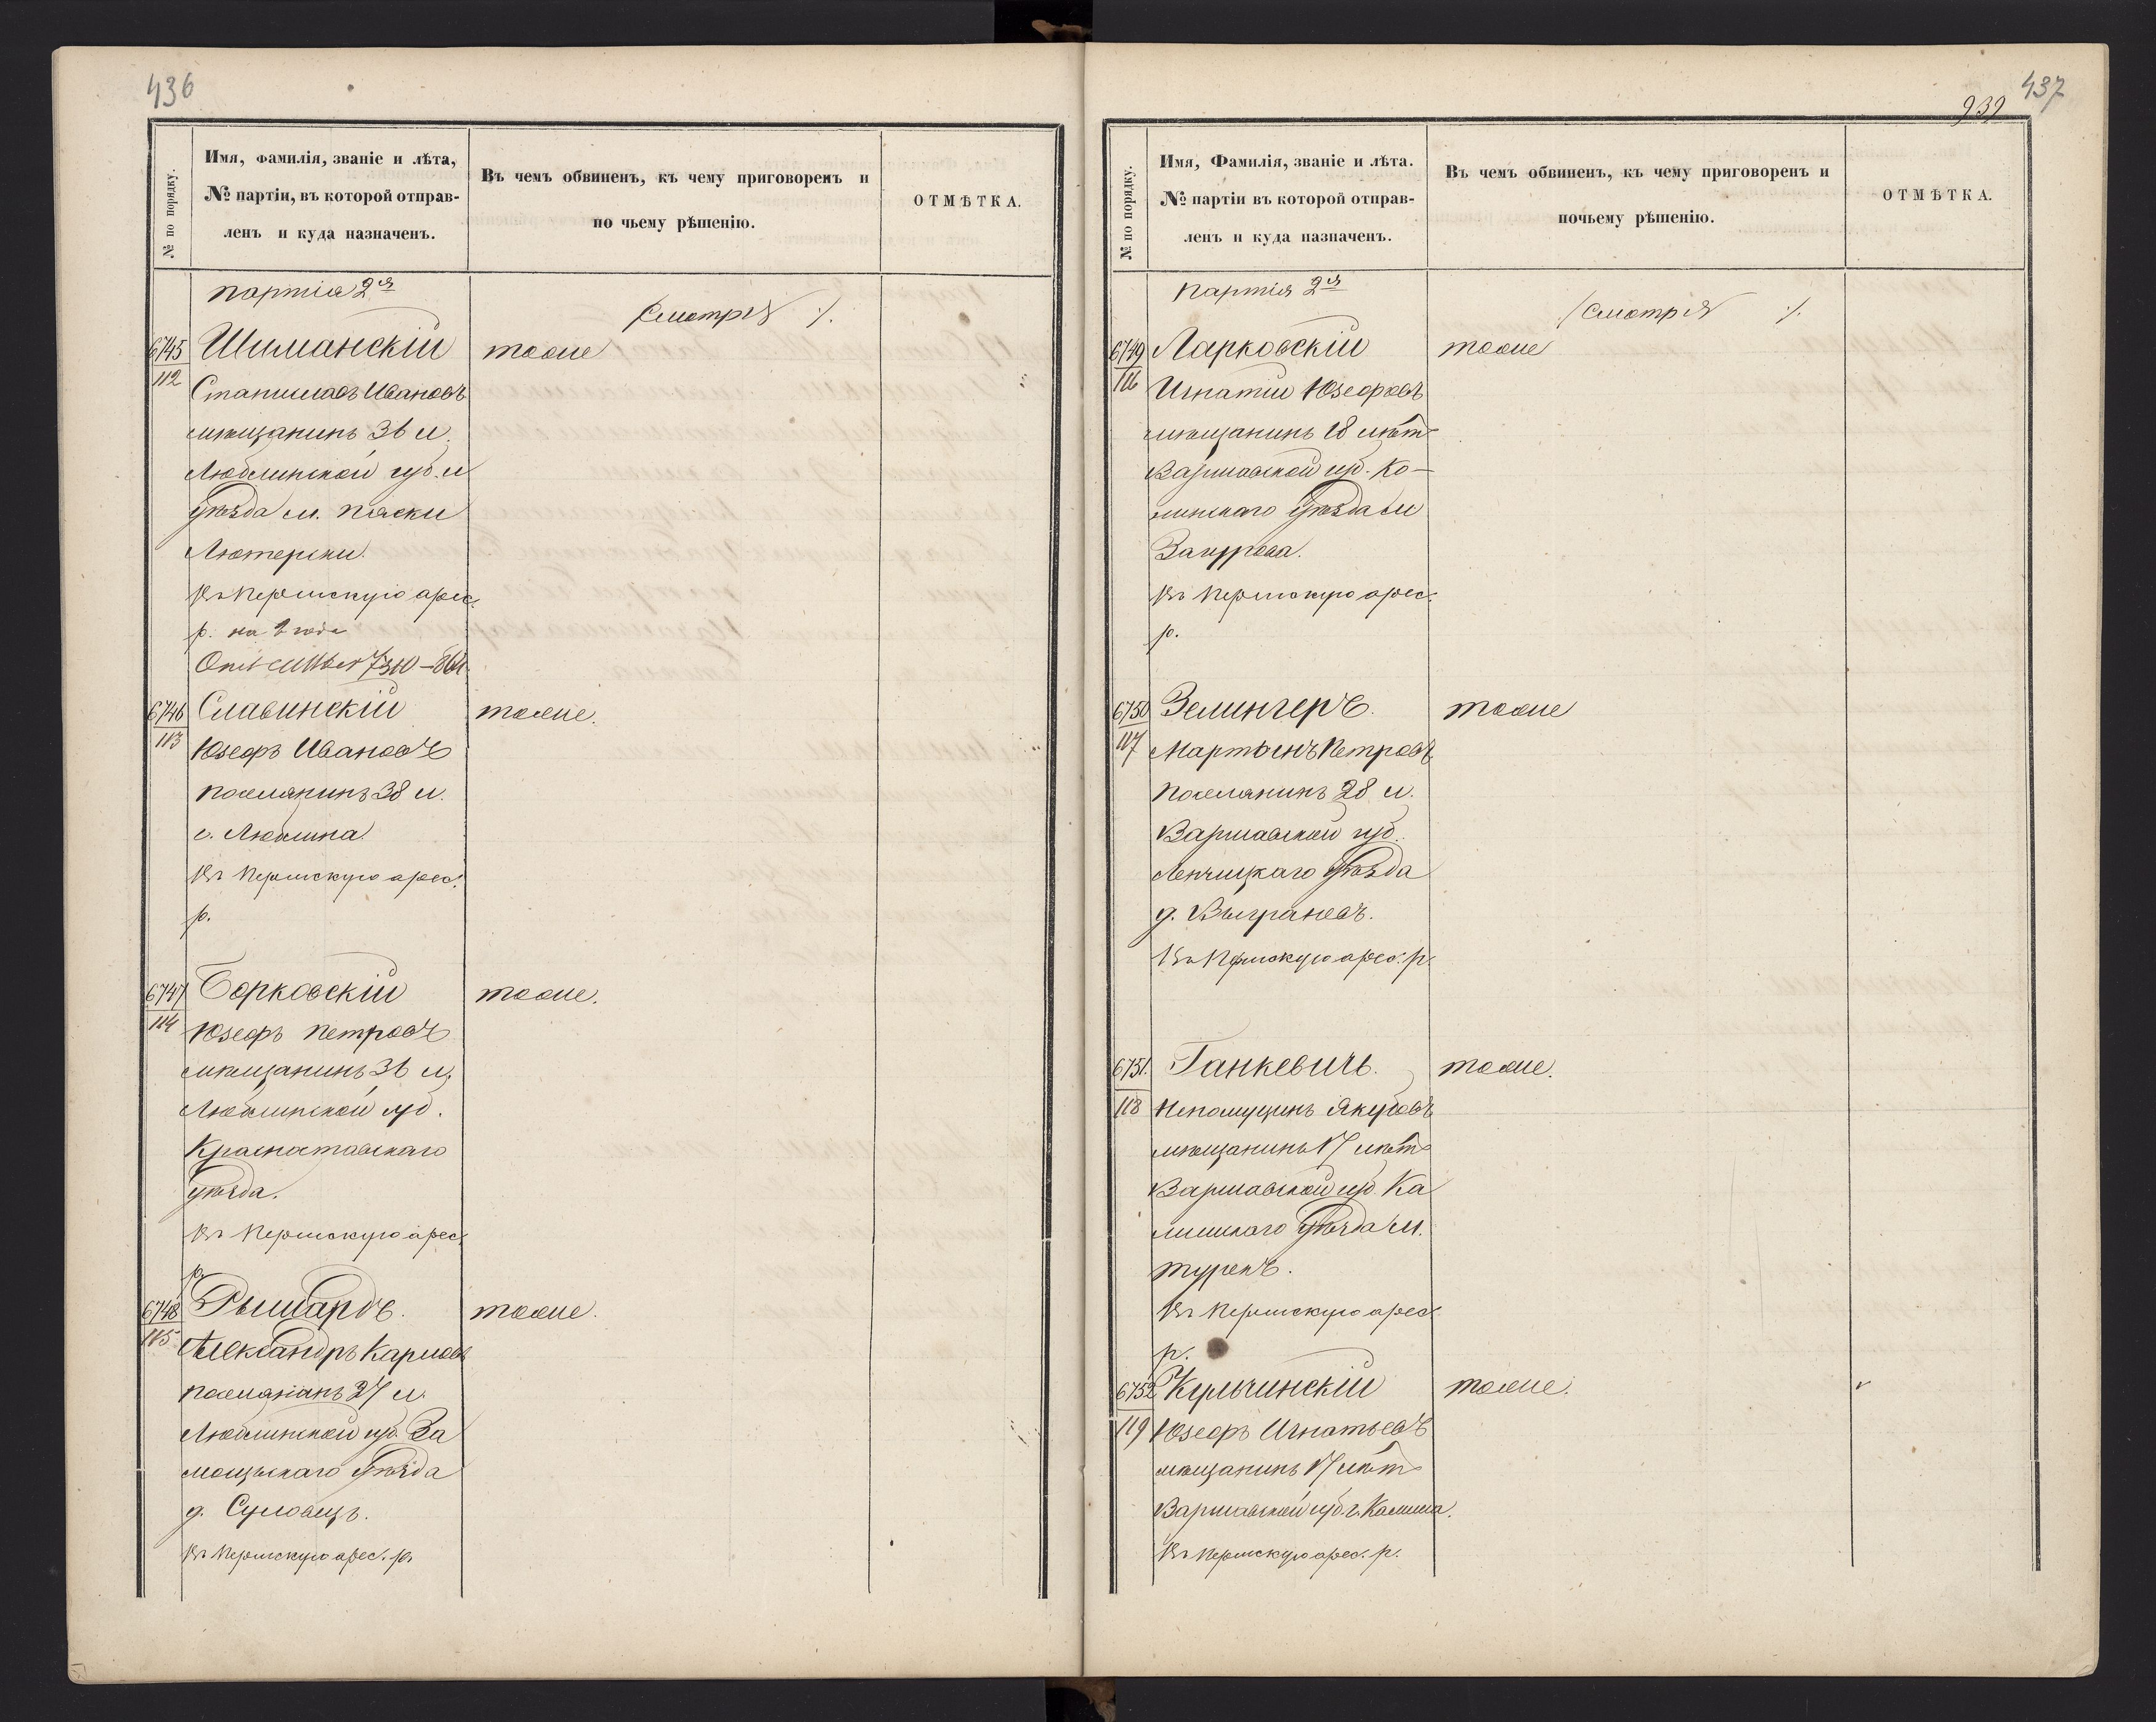 436
№ по порядку.
Имя, Фамилія, званіе и лѣта,
№ партіи, въ которой отправ-
ленъ и куда назначенъ.
Въ чемъ обвиненъ, къ чему приговоренъ и
по чьему рѣшенію.
ОТМѢТКА.
партія 2я
/смотри ./.
6745
112
Шиманскій
тоже
Станиславъ Ивановъ
мѣщанинъ 36 л.
Люблинской губ. и
уѣзда м. Пяски
Лютерски.
Въ Пермскую арес.
р. на 2 года
6746
113
Славинскій
тоже.
Юзефъ Ивановъ
поселянинъ 38 л.
г. Люблина.
Въ Пермскую арес.
р.
6747
114
Борковскій
тоже.
Юзефъ Петровъ
мѣщанинъ 36 л.
Люблинской губ.
Красноставскаго
уѣзда.
Въ Пермскую арес.
р.
6748
115
Рышардъ.
тоже.
Александръ Карловъ
поселянинъ 27 л.
Люблинской губ. За
мощьскаго уѣзда
д. Суловецъ.
Въ Пермскую арес. р.
437
939
№ по порядку.
Имя, Фамилія, званіе и лѣта.
№ партіи въ которой отправ-
ленъ и куда назначенъ.
Въ чемъ обвиненъ, къ чему приговоренъ и
почьему рѣшенію.
ОТМѢТКА.
партія 2я
/смотри ./.
6749
116
Ларковскій
тоже
Игнатій Юзефовъ
мѣщанинъ 18 лѣтъ
Варшавской губ. Ко-
нинскаго уѣзда м
Загурова.
Въ Пермскую арес.
р.
6750
117
Зелингеръ.
тоже
Мартынъ Петровъ
поселянинъ 28 л.
Варшавской губ.
Ленчицкаго уѣзда
д. Выграневъ.
Въ Пермскую арес. р.
6751.
118
Ганкевичъ.
тоже.
Непомуцинъ Якубовъ
мѣщанинъ 17 лѣтъ
Варшавской губ. Ка
лишскаго уѣзда м.
Турекъ.
Въ Пермскую арес.
р.
6752
119
Кульчинскій
тоже.
Юзефъ Игнатьевъ
мѣщанинъ 17 лѣтъ
Варшавской губ. г. Калиша.
Въ Пермскую арес. р.